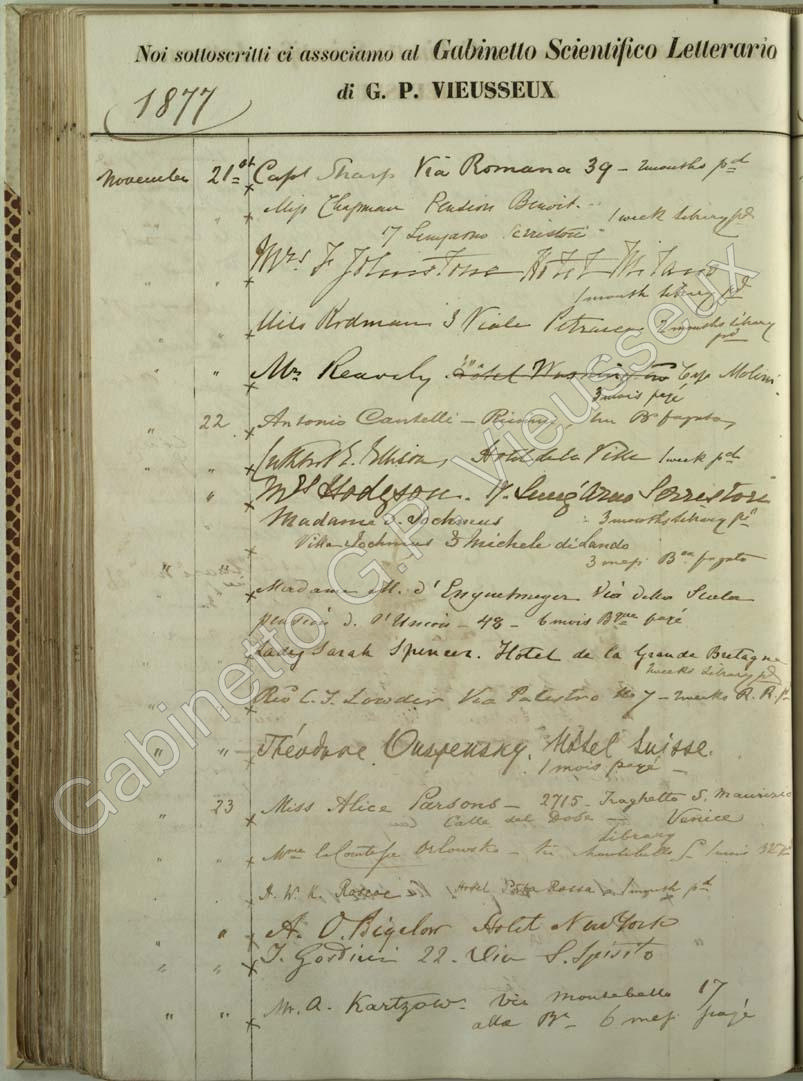 Noi sottoscritti ci associamo al Gabinetto Scientifico Letterario
di G. P. VIEUSSEUX
1877
November 21st Capt Sharp Via Romana 39 - 2 months pd
" Miss Chapman Pension Benoit
17 Lungarno Serristori 1 week library pd
" Mrs F Johnstone Hotel Milano
1 month library pd
" Miss Rodman 3 Viale Petrarca 2 months library
pd
" Mr Reavely Hôtel Washington Casa Molini
3 mois payé
" 22 Antonio Cantelli - Rimini,
" " E. Ellison, Hotel de la Ville 1 week pd
" Mrs Hodgson. 17. Lung'Arno Serristori
Madame Jochmus 3 months library pd
Villa Jochmus 3 Michele di Lando
" " 3 mesi Bca pagato
Madame M. d' Via della Scala
pension de l'Union - 48 - 6 mois Bque payé
Lady Sarah Spencer. Hotel de la Grande Bretagne
2 weeks library pd
Rev C. F. Lowder Via Palestro No 7 - 2 weeks R. R. pd
" " Théodore Ouspensky. Hôtel Suisse.
1 mois payé -
" 23 Miss Alice Parsons - 2715 - Traghetto S. Maurizio
Calle del Dose - Venice
Library
" Mme la Comtesse Orlowska 1 mois
W. K. Roscoe Hotel Porta Rossa 1 month pd
" " A. O. Bigelow Hotel New York
" " 22 - Via S. Spirito
" " Mr. A. Kartzow. Via Montebello 17
alla Bca 6 mesi payé
Gabinetto G.P. Vieusseux